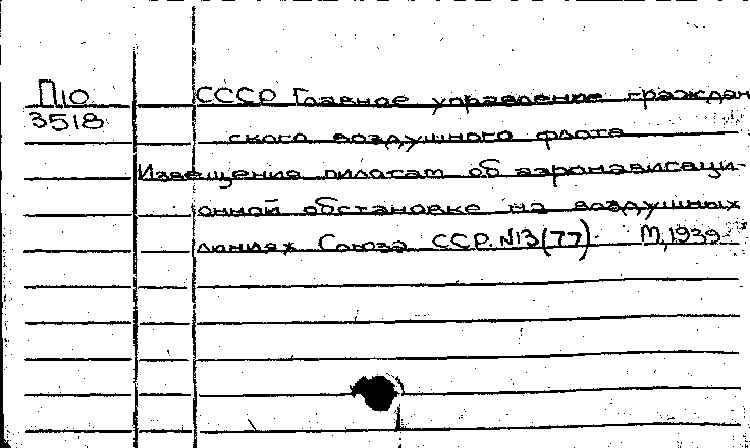 П10 СССР Главное управление граждан
3518
ского воздушного флота
Извещения пилотам об аэронавигаци-
онной обстановке на воздушных
линиях Союза ССР. №13(77). М, 1939